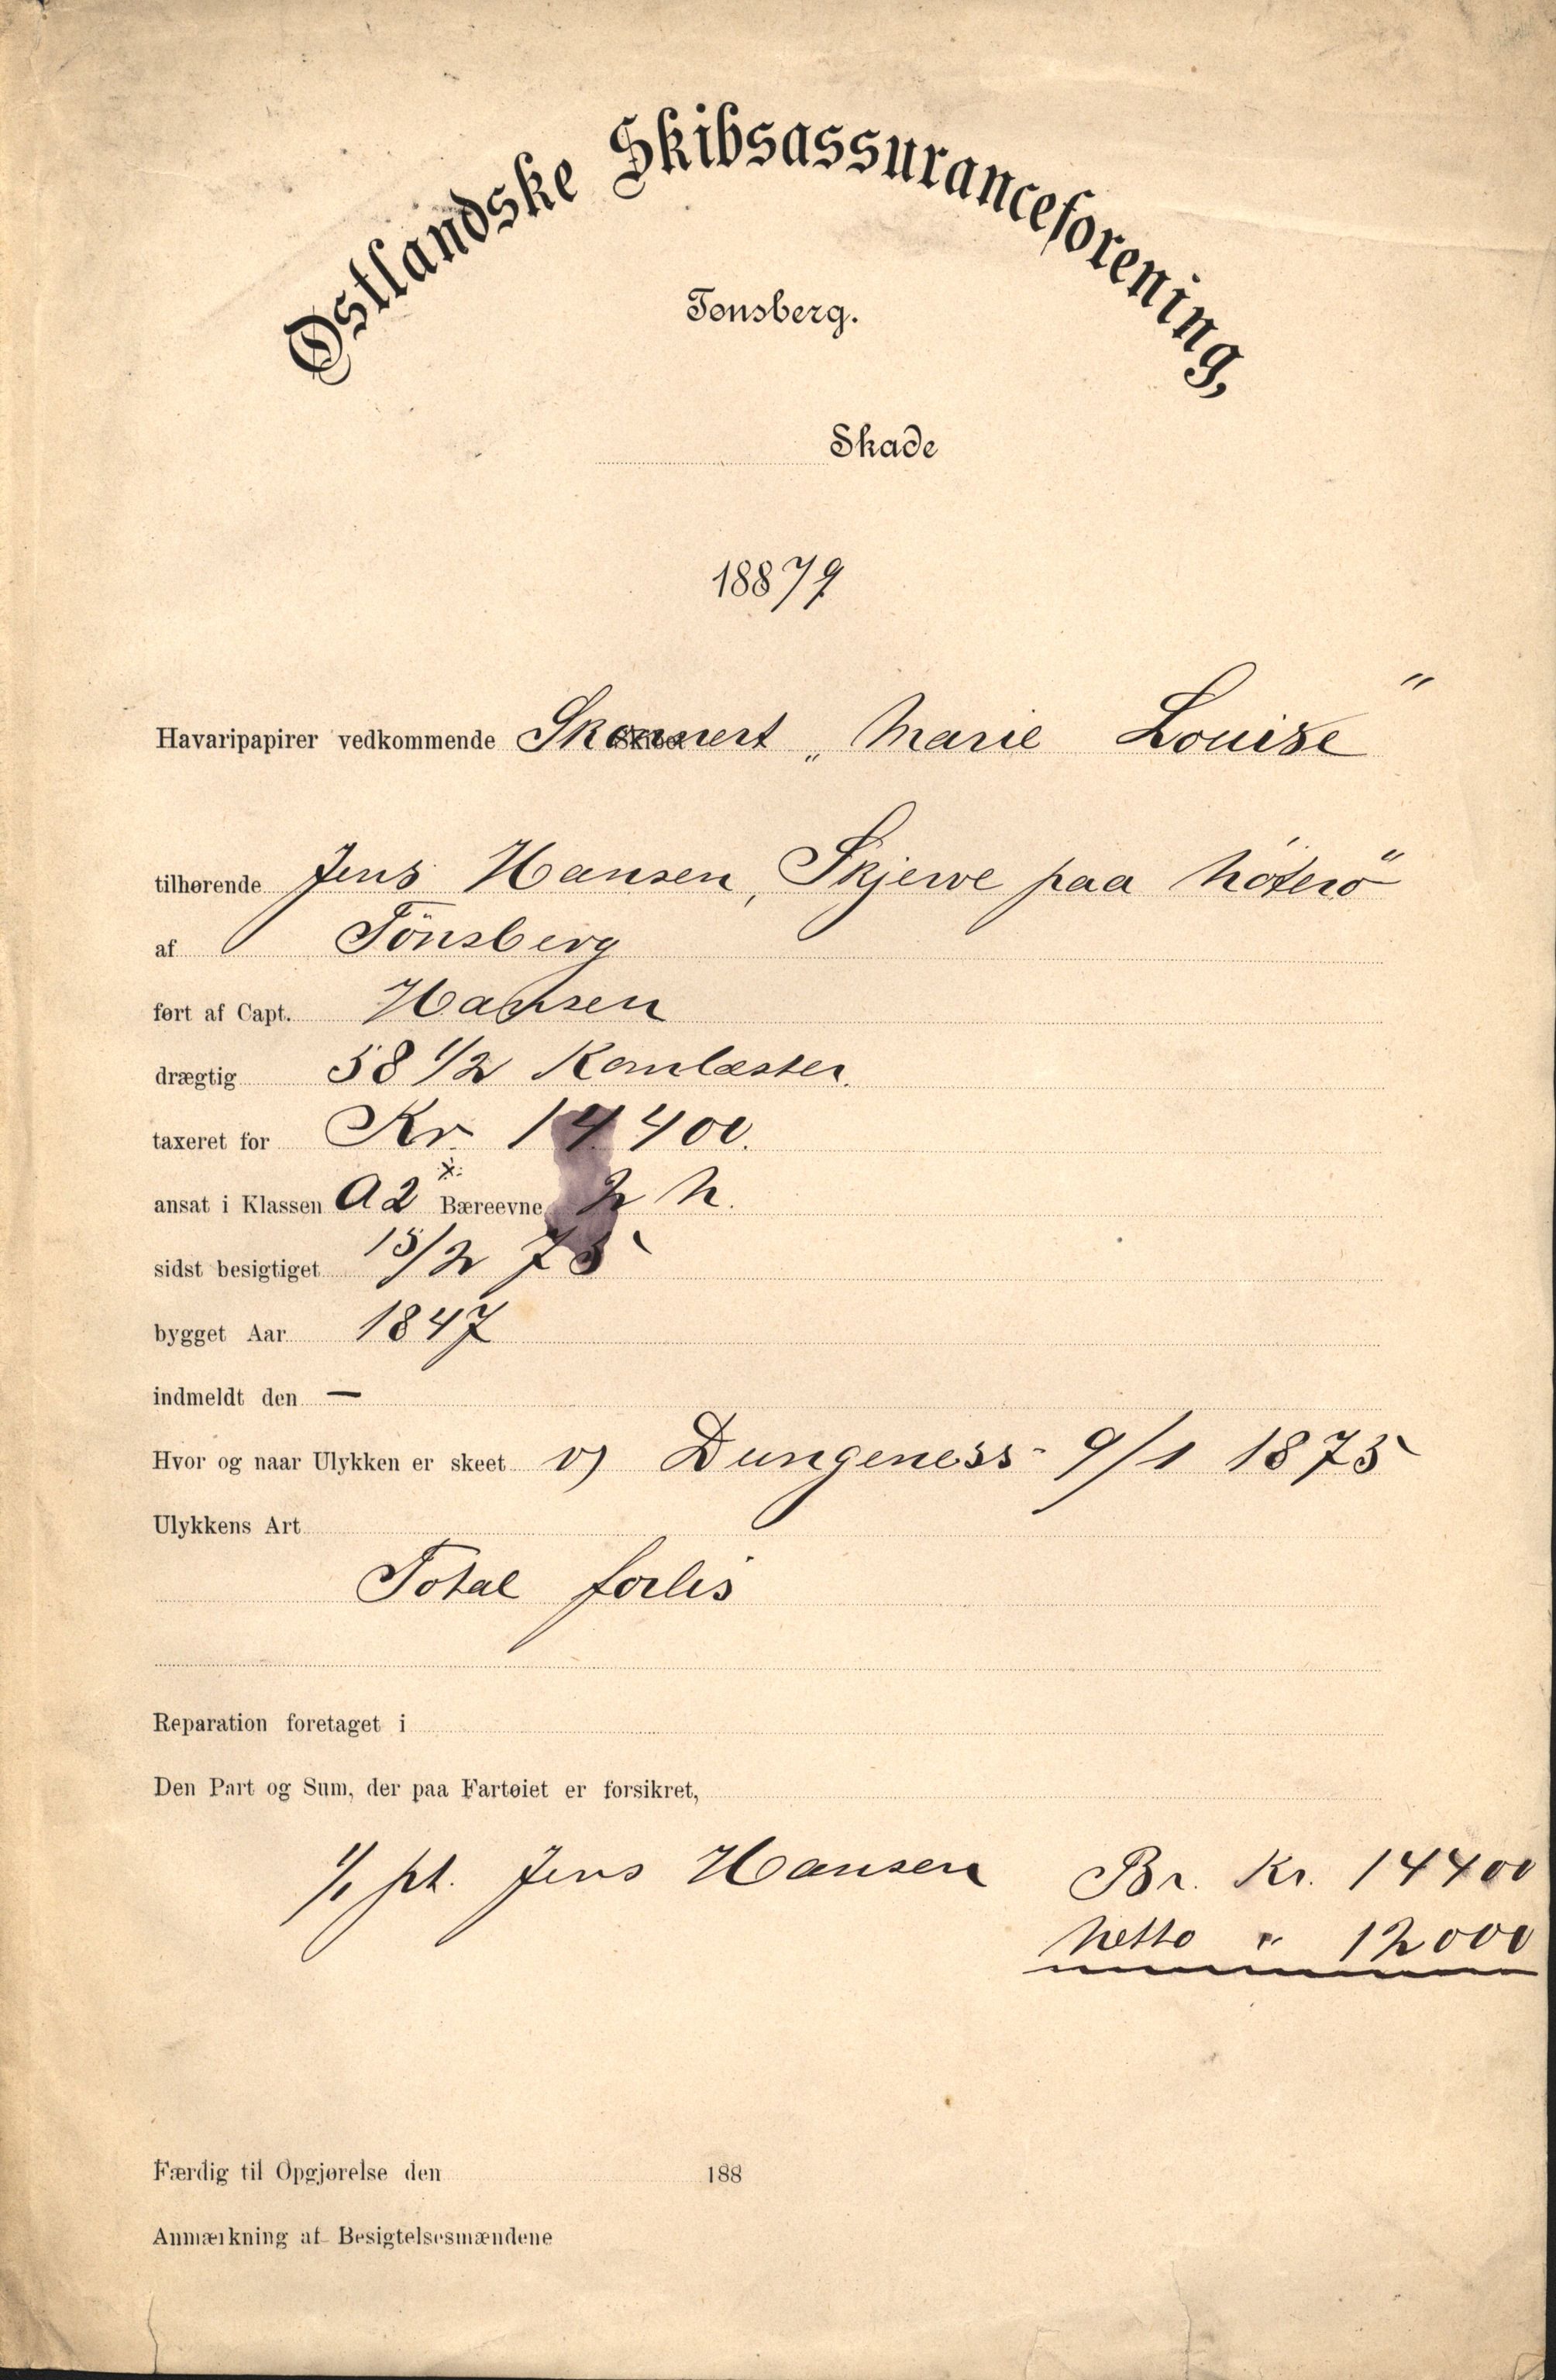 Østlandske Skibsassuranceforening,
Tønsberg.
Skade
18879
Havaripapirer vedkommende Skonnert „Marie Louise"
tilhørende Jens Hansen, Skjerve paa Nöterö"
af Tönsberg
ført af Capt. Hansen
drægtig 58 1/2 Komlæster.
taxeret for Kr. 14400.
ansat i Klassen A2 Bæreevne
sidst besigtiget 15/2 75
bygget Aar 1847
indmeldt den —
Hvor og naar Ulykken er skeet v) Dungeness 9/1 1875
Ulykkens Art
Total forlis
Reparation foretaget i
Den Part og Sum, der paa Fartøiet er forsikret,
1/1 pt. Jens Hansen Br. Kr. 14400
Netto " 12000
Færdig til Opgjørelse den 188
Anmærkning af Besigtelsesmændene